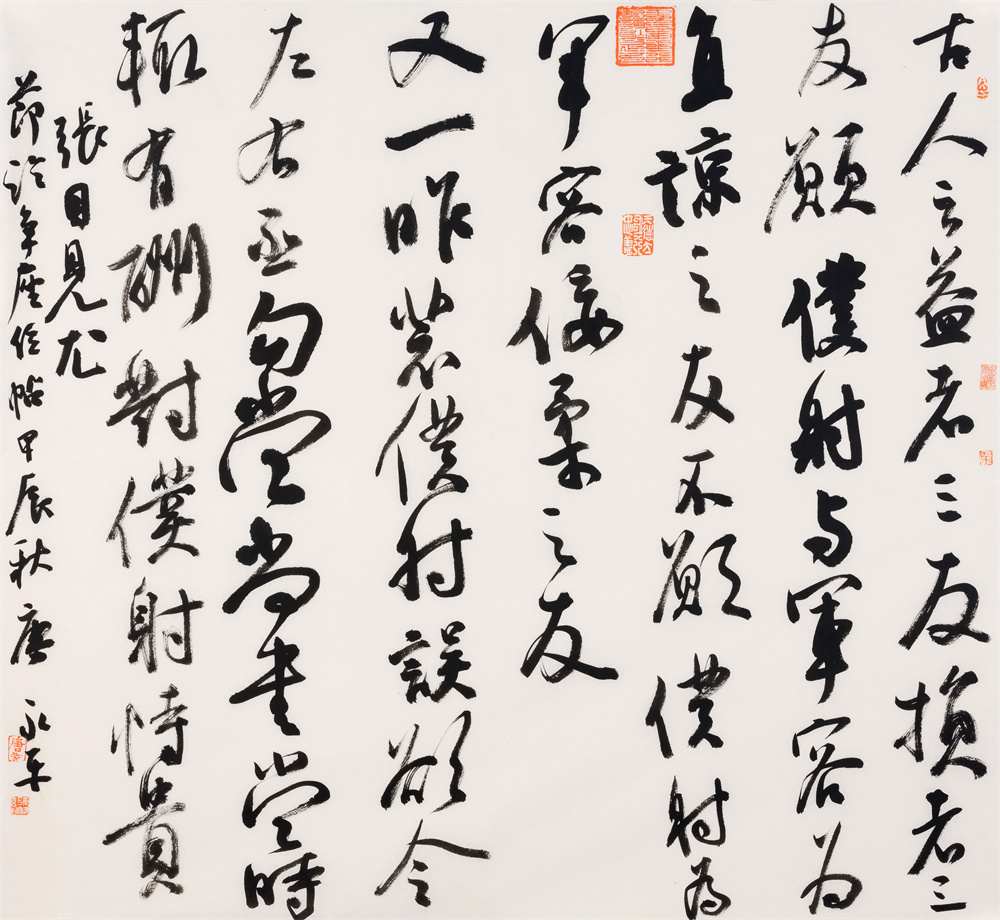 古人云益者三友損者三
友願僕射与軍容为
直諒之友不願僕射为
軍容佞柔之友
又一昨裴僕射誤欲令
左右丞勾當尚書當時
輒有酬對僕射恃貴
張目見尤
節臨争座位帖甲辰秋唐永平